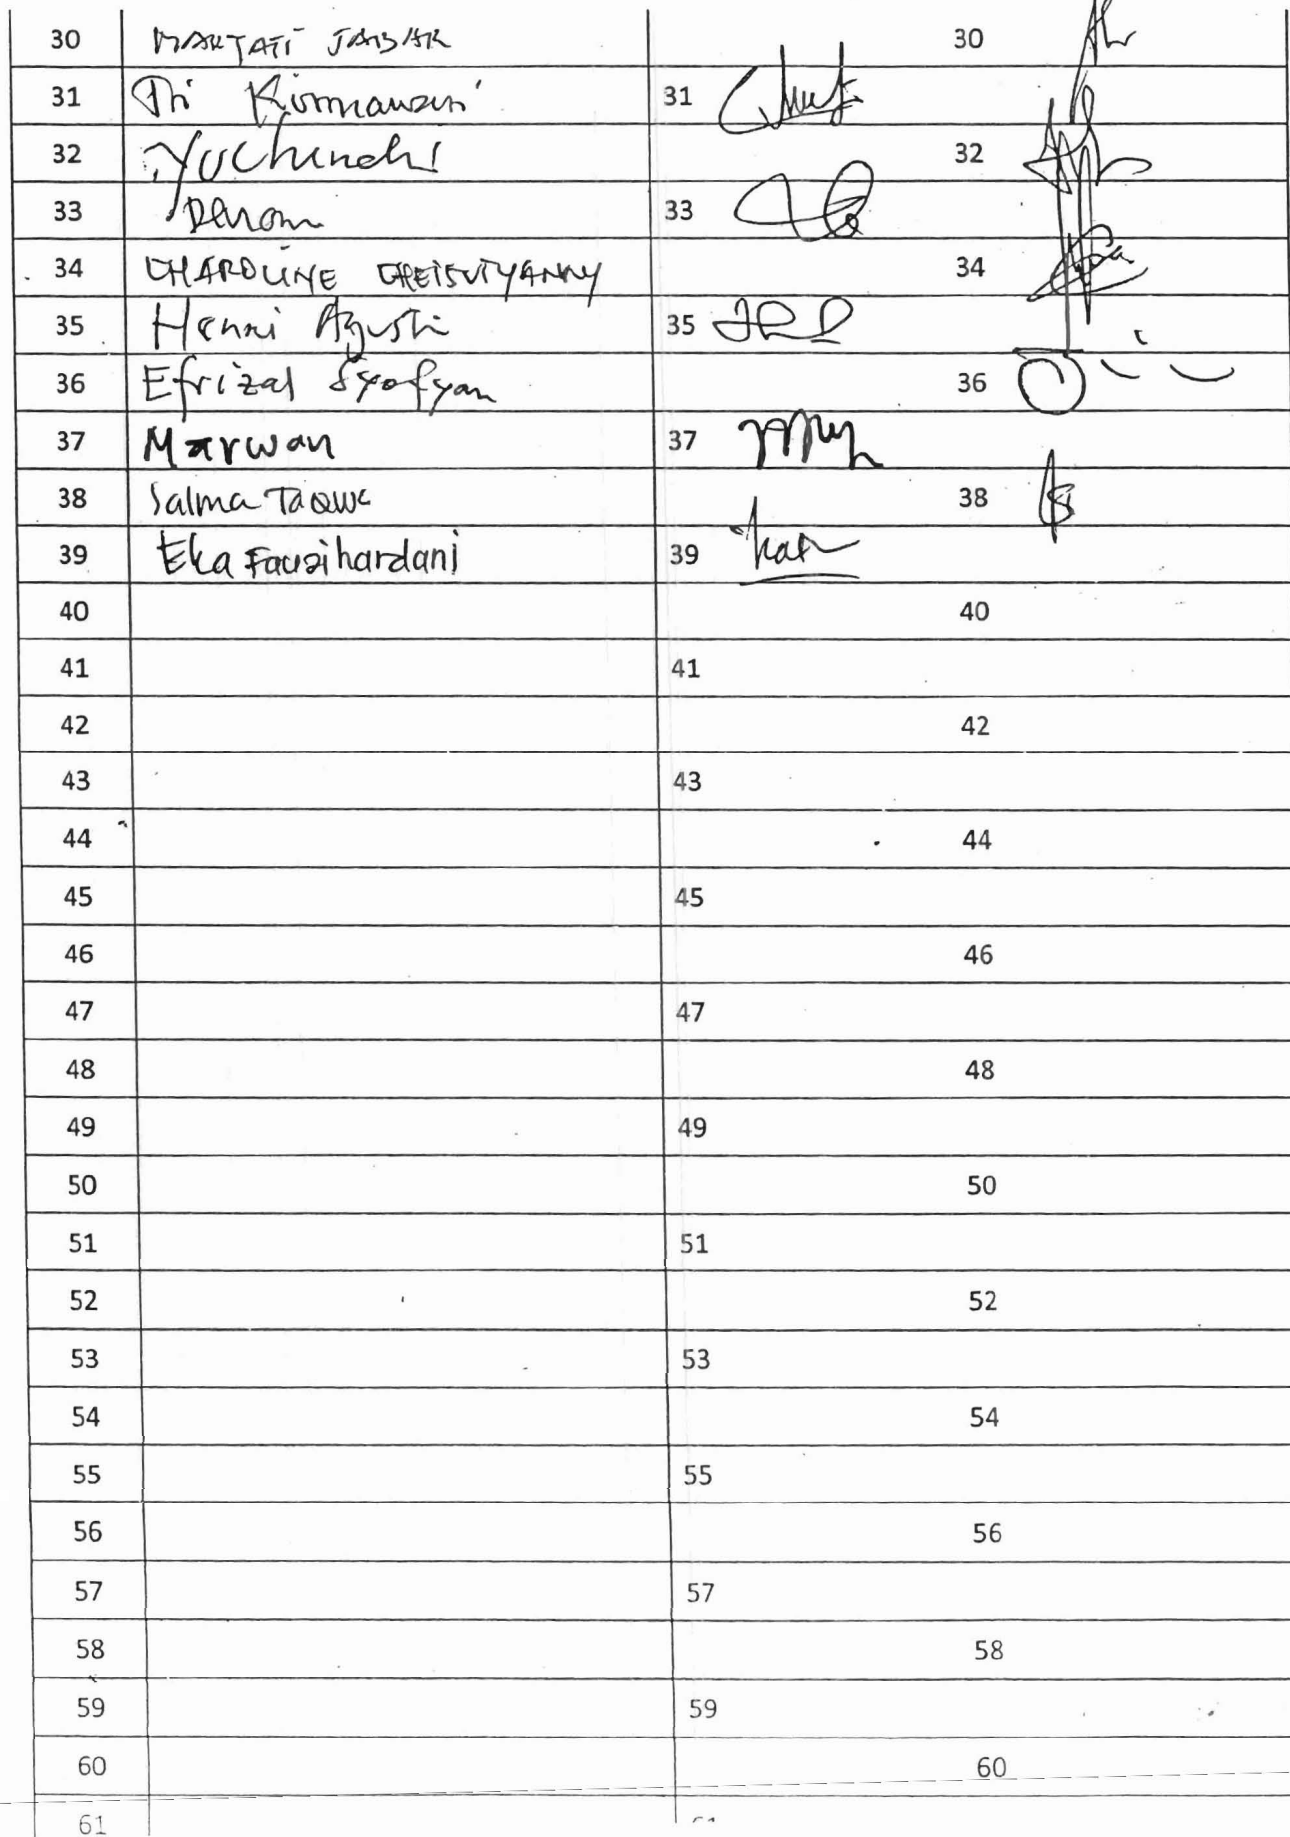 30 30
31 Tri Kurniawan 31
32 Yuchendri 32
33 33
34 34
35 Henri Agusti 35
36 Efrizal Syofyan 36
37 Marwan 37
38 Salma Taqwa 38
39 Eka Fauzihardani 39
40 40
41 41
42 42
43 43
44 44
45 45
46 46
47 47
48 48
49 49
50 50
51 51
52 52
53 53
54 54
55 55
56 56
57 57
58 58
59 59
60 60
61